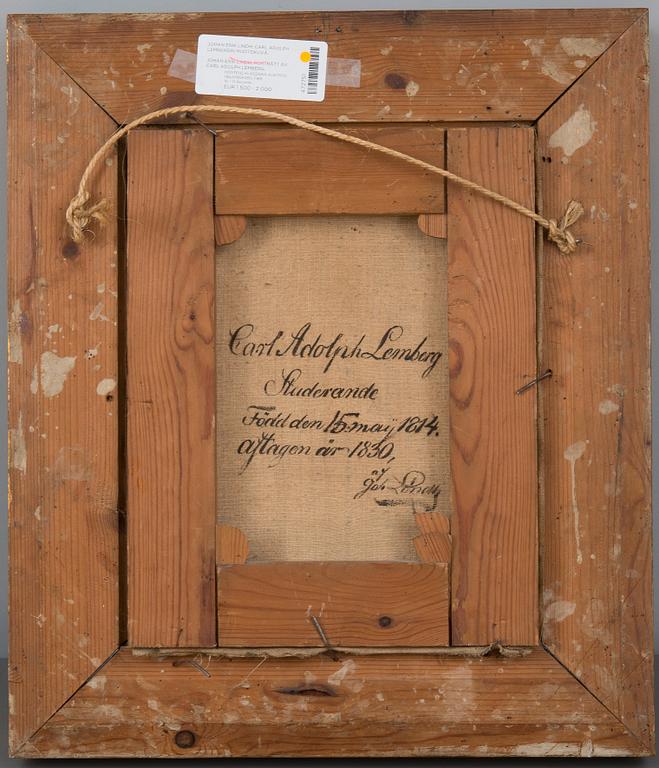 JOHAN ERIK LINDH, CARL ADOLPH
LEMBERGIN MUOTOKUVA.
JOHAN ERIK LINDH, PORTRÄTT AV
CARL ADOLPH LEMBERG.
EUR 1 500 - 2 000
Carl Adolph Lemberg
Studerande
Född den 15 maij 1814.
aftagen år 1830,
af
Joh. Lindh